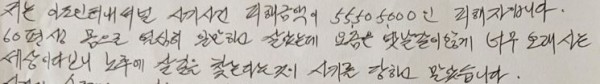 저는 이조인터내셔널 사기사건 피해금액이 55,505000인 피해자입니다.
60평생 몸으로 열심히 일만하고 살았는데 요즘은 옛날같이않게 너무 오래사는
세상이다보니 노후에 살길을 찾는다는것이 사기를 당하고 말았습니다.